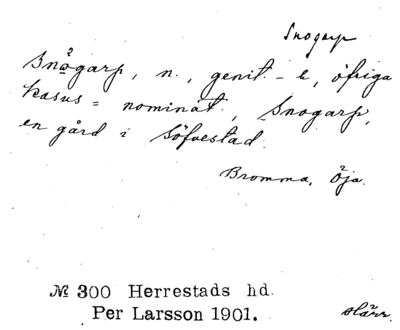 Snogarp
Snågarp, n., genit. - e, öfriga
kasus = nominat., Snogarp,
en gård i Söfvestad.
Bromma, Öja.
№ 300 Herrestads hd.
Per Larsson 1901.